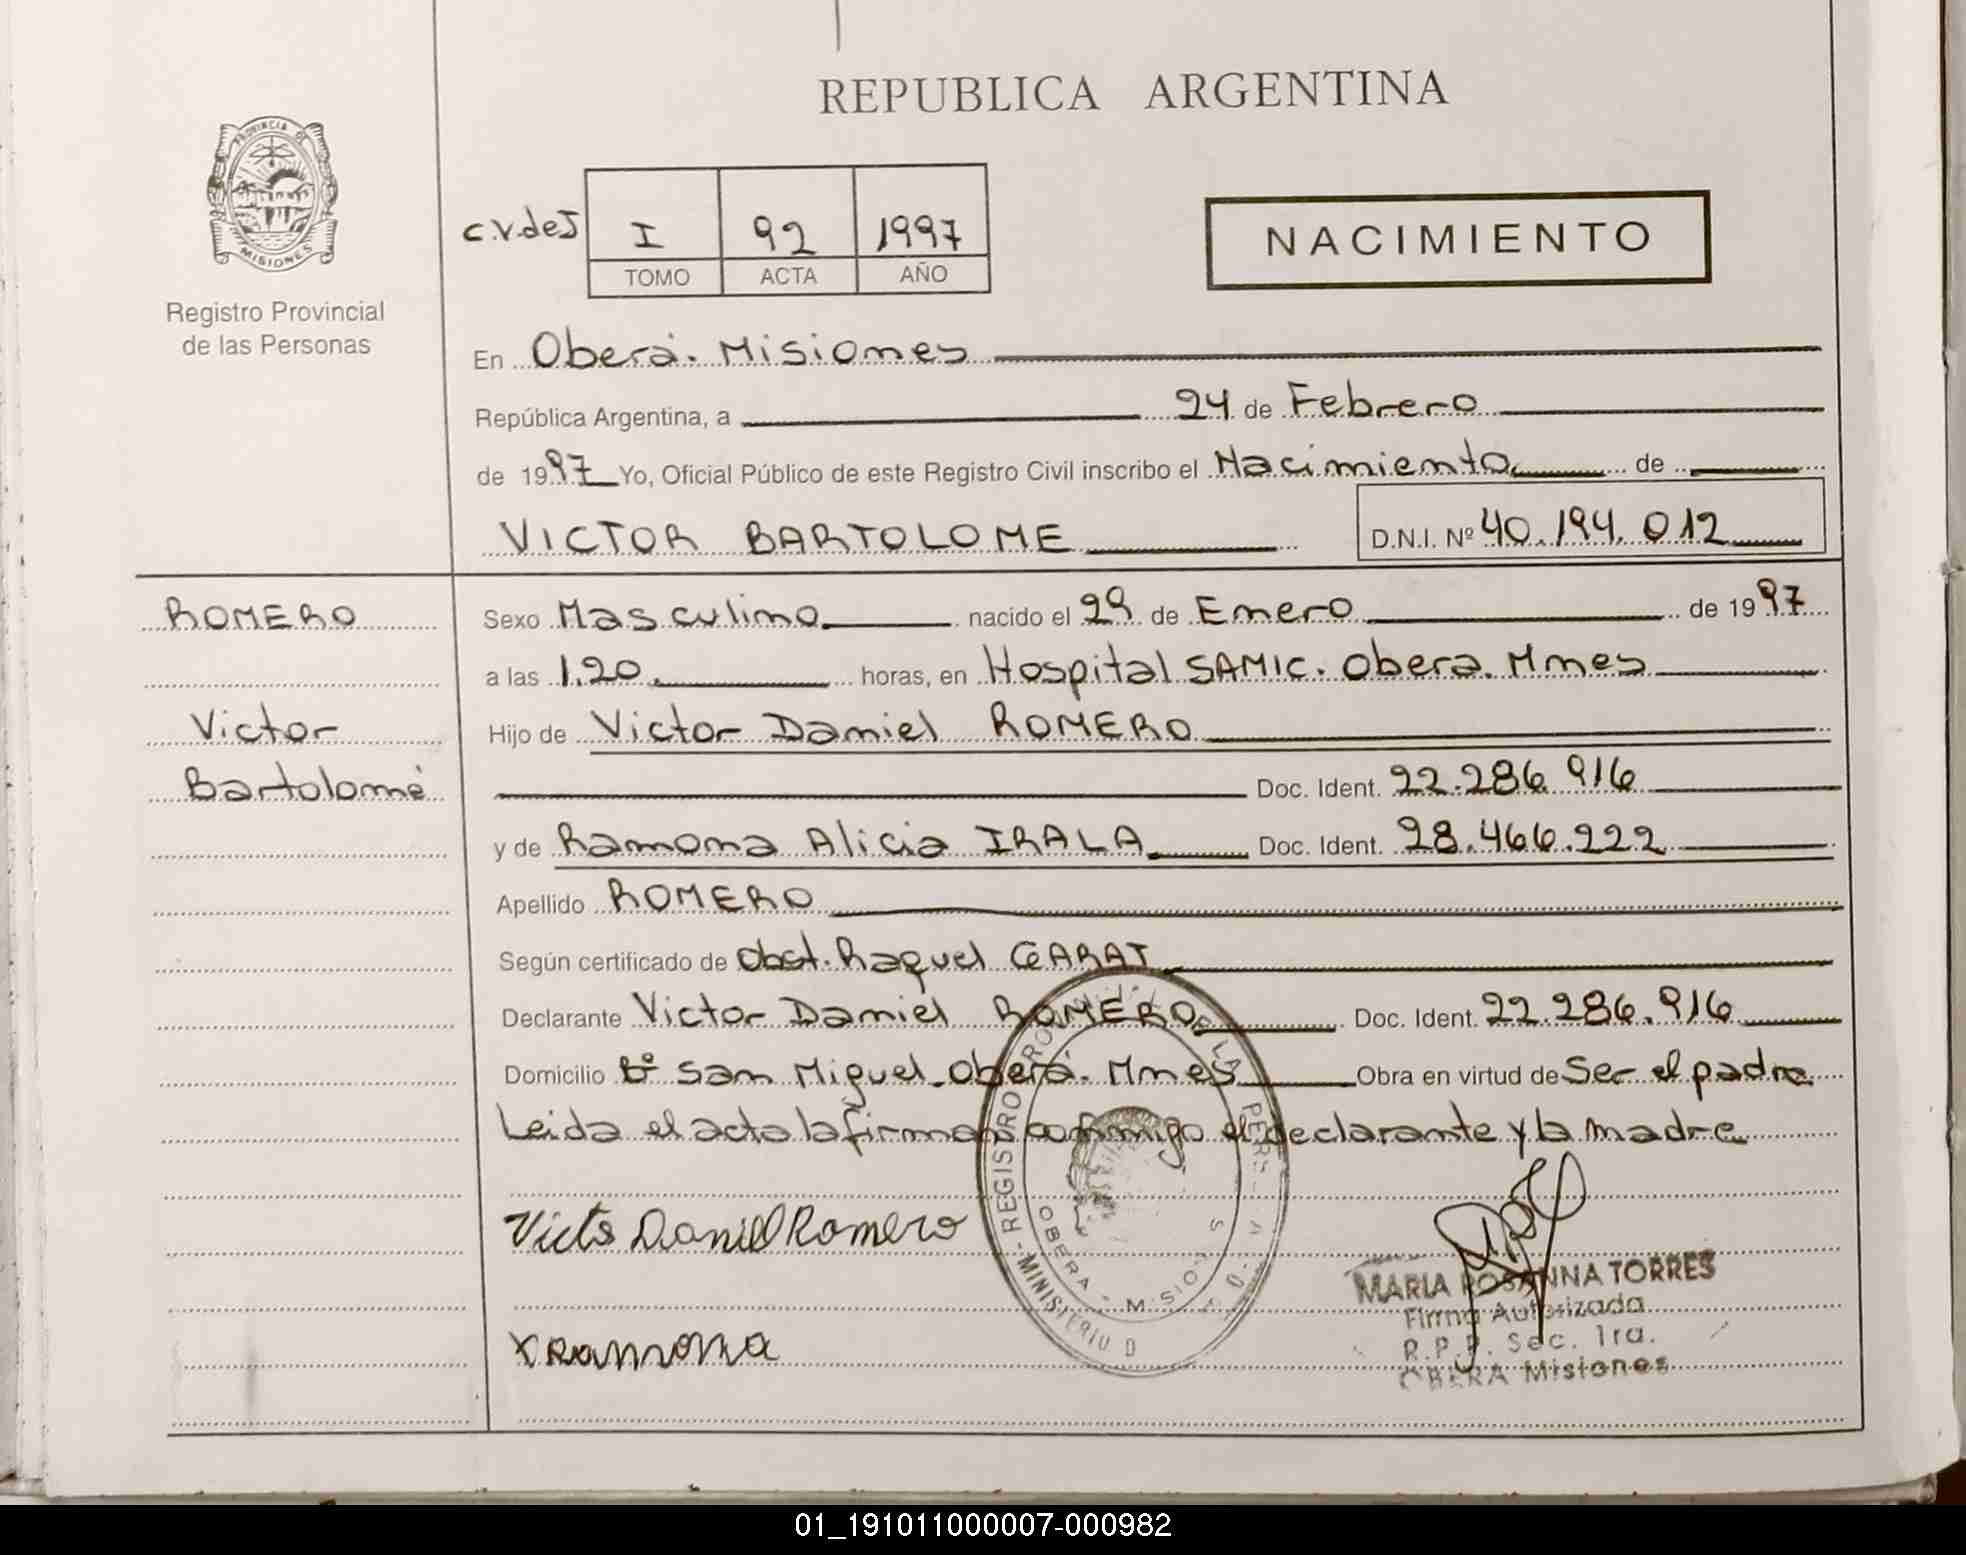 REPUBLICA ARGENTINA
PROVINCIA DE
MISIONES
Registro Provincial
de las Personas
c.v.deJ I 92 1997
TOMO ACTA AÑO
NACIMIENTO
En Oberá. Misiones
República Argentina, a 24 de Febrero
de 1997 Yo, Oficial Público de este Registro Civil inscribo el Nacimiento de
VICTOR BARTOLOME D.N.I. Nº 40.194.012
ROMERO
Victor
Bartolomé
Sexo Masculino nacido el 29 de Enero de 1997
a las 1.20 horas, en Hospital SAMIC. Obera. Mnes
Hijo de Victor Daniel ROMERO
Doc. Ident. 22.286.916
y de Ramona Alicia IRALA Doc. Ident. 28.466.222
Apellido ROMERO
Según certificado de Obst. Raquel GARAT
Declarante Victor Daniel ROMERO Doc. Ident. 22.286.916
Domicilio Bº San Miguel. Oberá. Mnes Obra en virtud de Ser el padre
Leida el acta la firman conmigo el declarante y la madre
Victo Daniel Romero
x Ramona
REGISTRO
MINISTERIO D
OBERA - MISIONES
MARIA ROSANNA TORRES
Firma Autorizada
R.P.P. Sec. 1ra.
OBERA Misiones
01_191011000007-000982